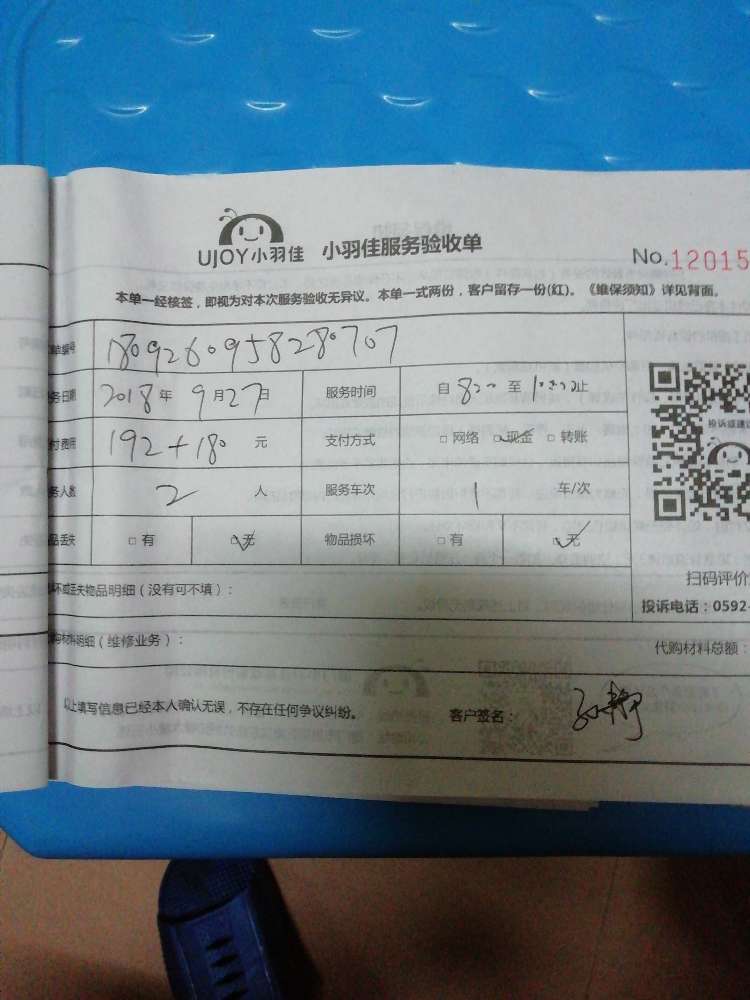 UJOY小羽佳 小羽佳服务验收单
No.12015
本单一经核签，即视为对本次服务验收无异议。本单一式两份，客户留存一份(红)。《维保须知》详见背面。
编号 1809260958280707
务日期 2018年9月27日 服务时间 自 800 至 止
付费用 192+180 元 支付方式 □网络 □现金 □转账
务人数 2 人 服务车次 1 车/次
品丢失 □有 □无 物品损坏 □有 □无
投诉或建议
坏或丢失物品明细（没有可不填）：
扫码评价
投诉电话：0592-
购材料明细（维修业务）：
代购材料总额：
以上填写信息已经本人确认无误，不存在任何争议纠纷。 客户签名：